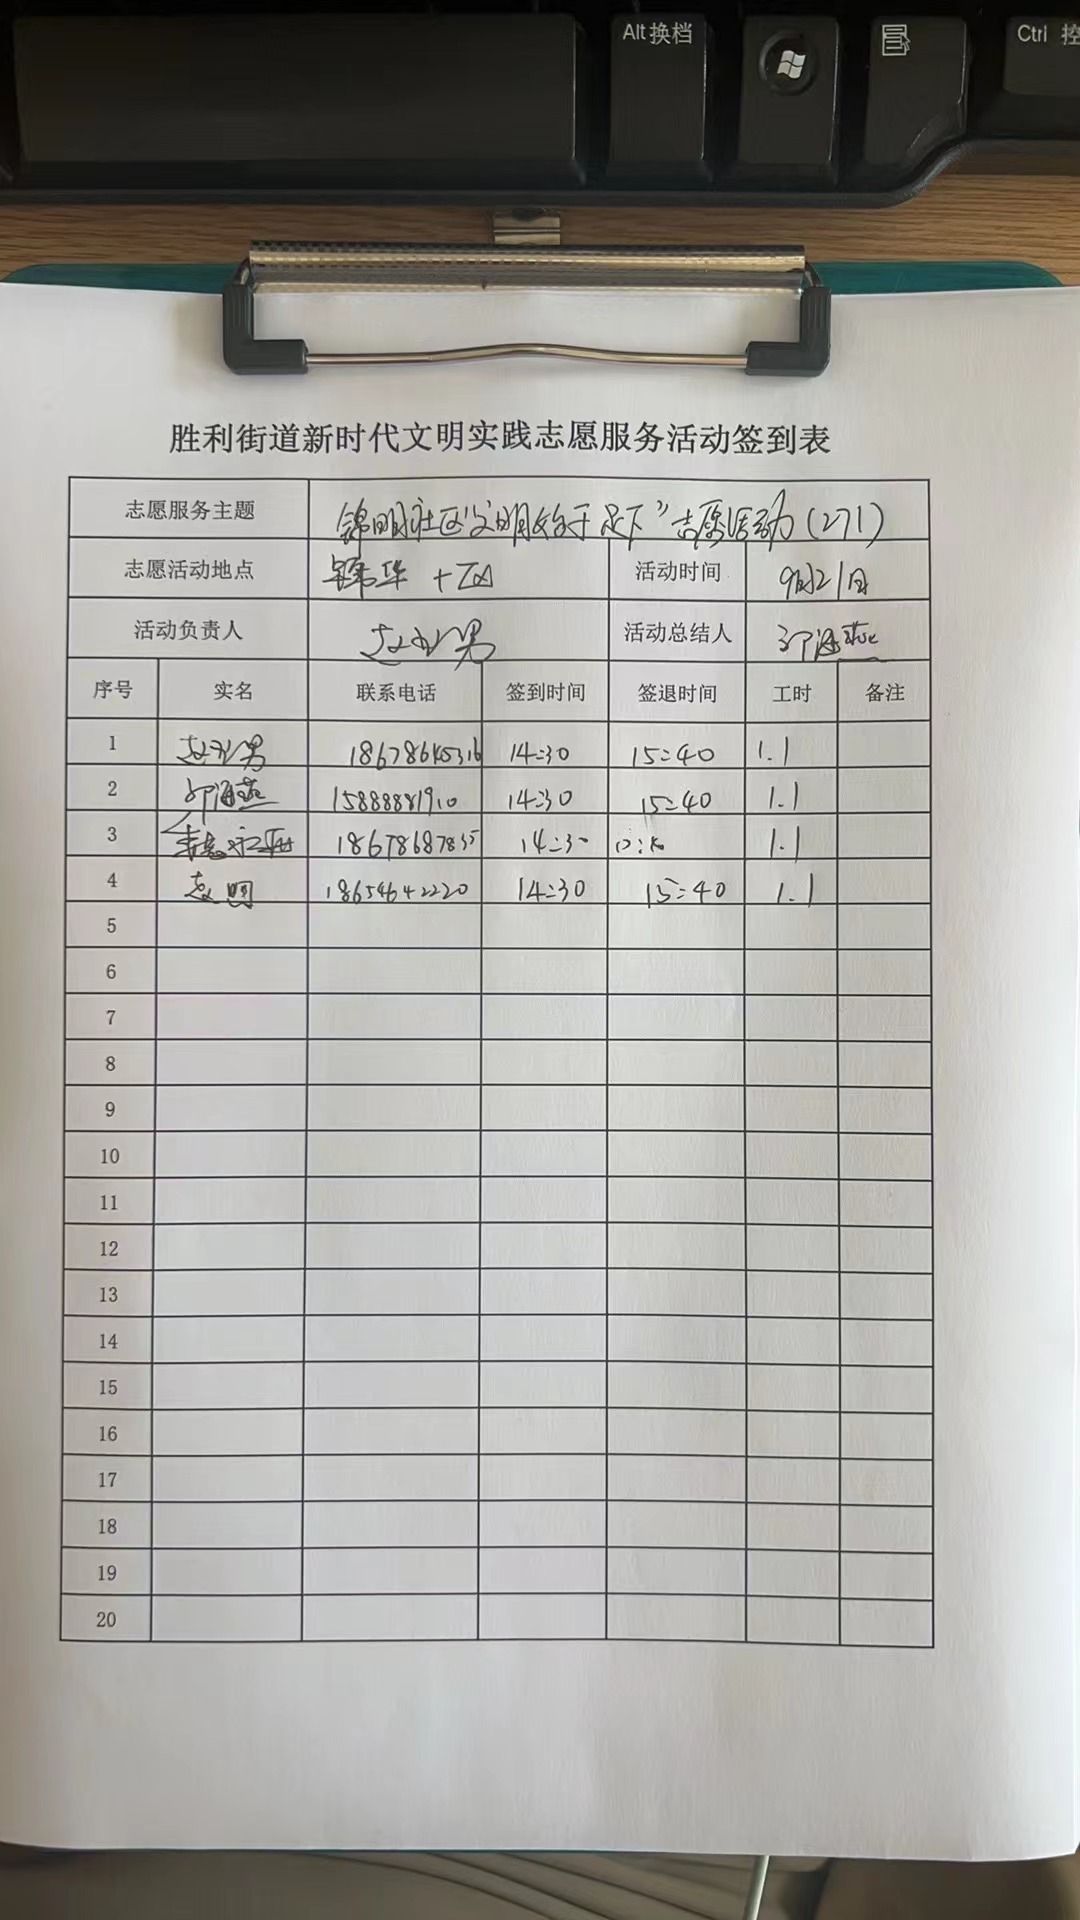 Alt 换档
Ctrl 控
胜利街道新时代文明实践志愿服务活动签到表
志愿服务主题 锦明社区“文明始于足下”志愿活动(271)
志愿活动地点 锦华十区 活动时间 9月21日
活动负责人 男 活动总结人 邓海燕
序号 实名 联系电话 签到时间 签退时间 工时 备注
1 男 14:30 15:40 1.1
2 邓海燕 15888881910 14:30 15:40 1.1
3 18678687835 14:30 1.1
4 赵照 18654642220 14:30 15:40 1.1
5
6
7
8
9
10
11
12
13
14
15
16
17
18
19
20